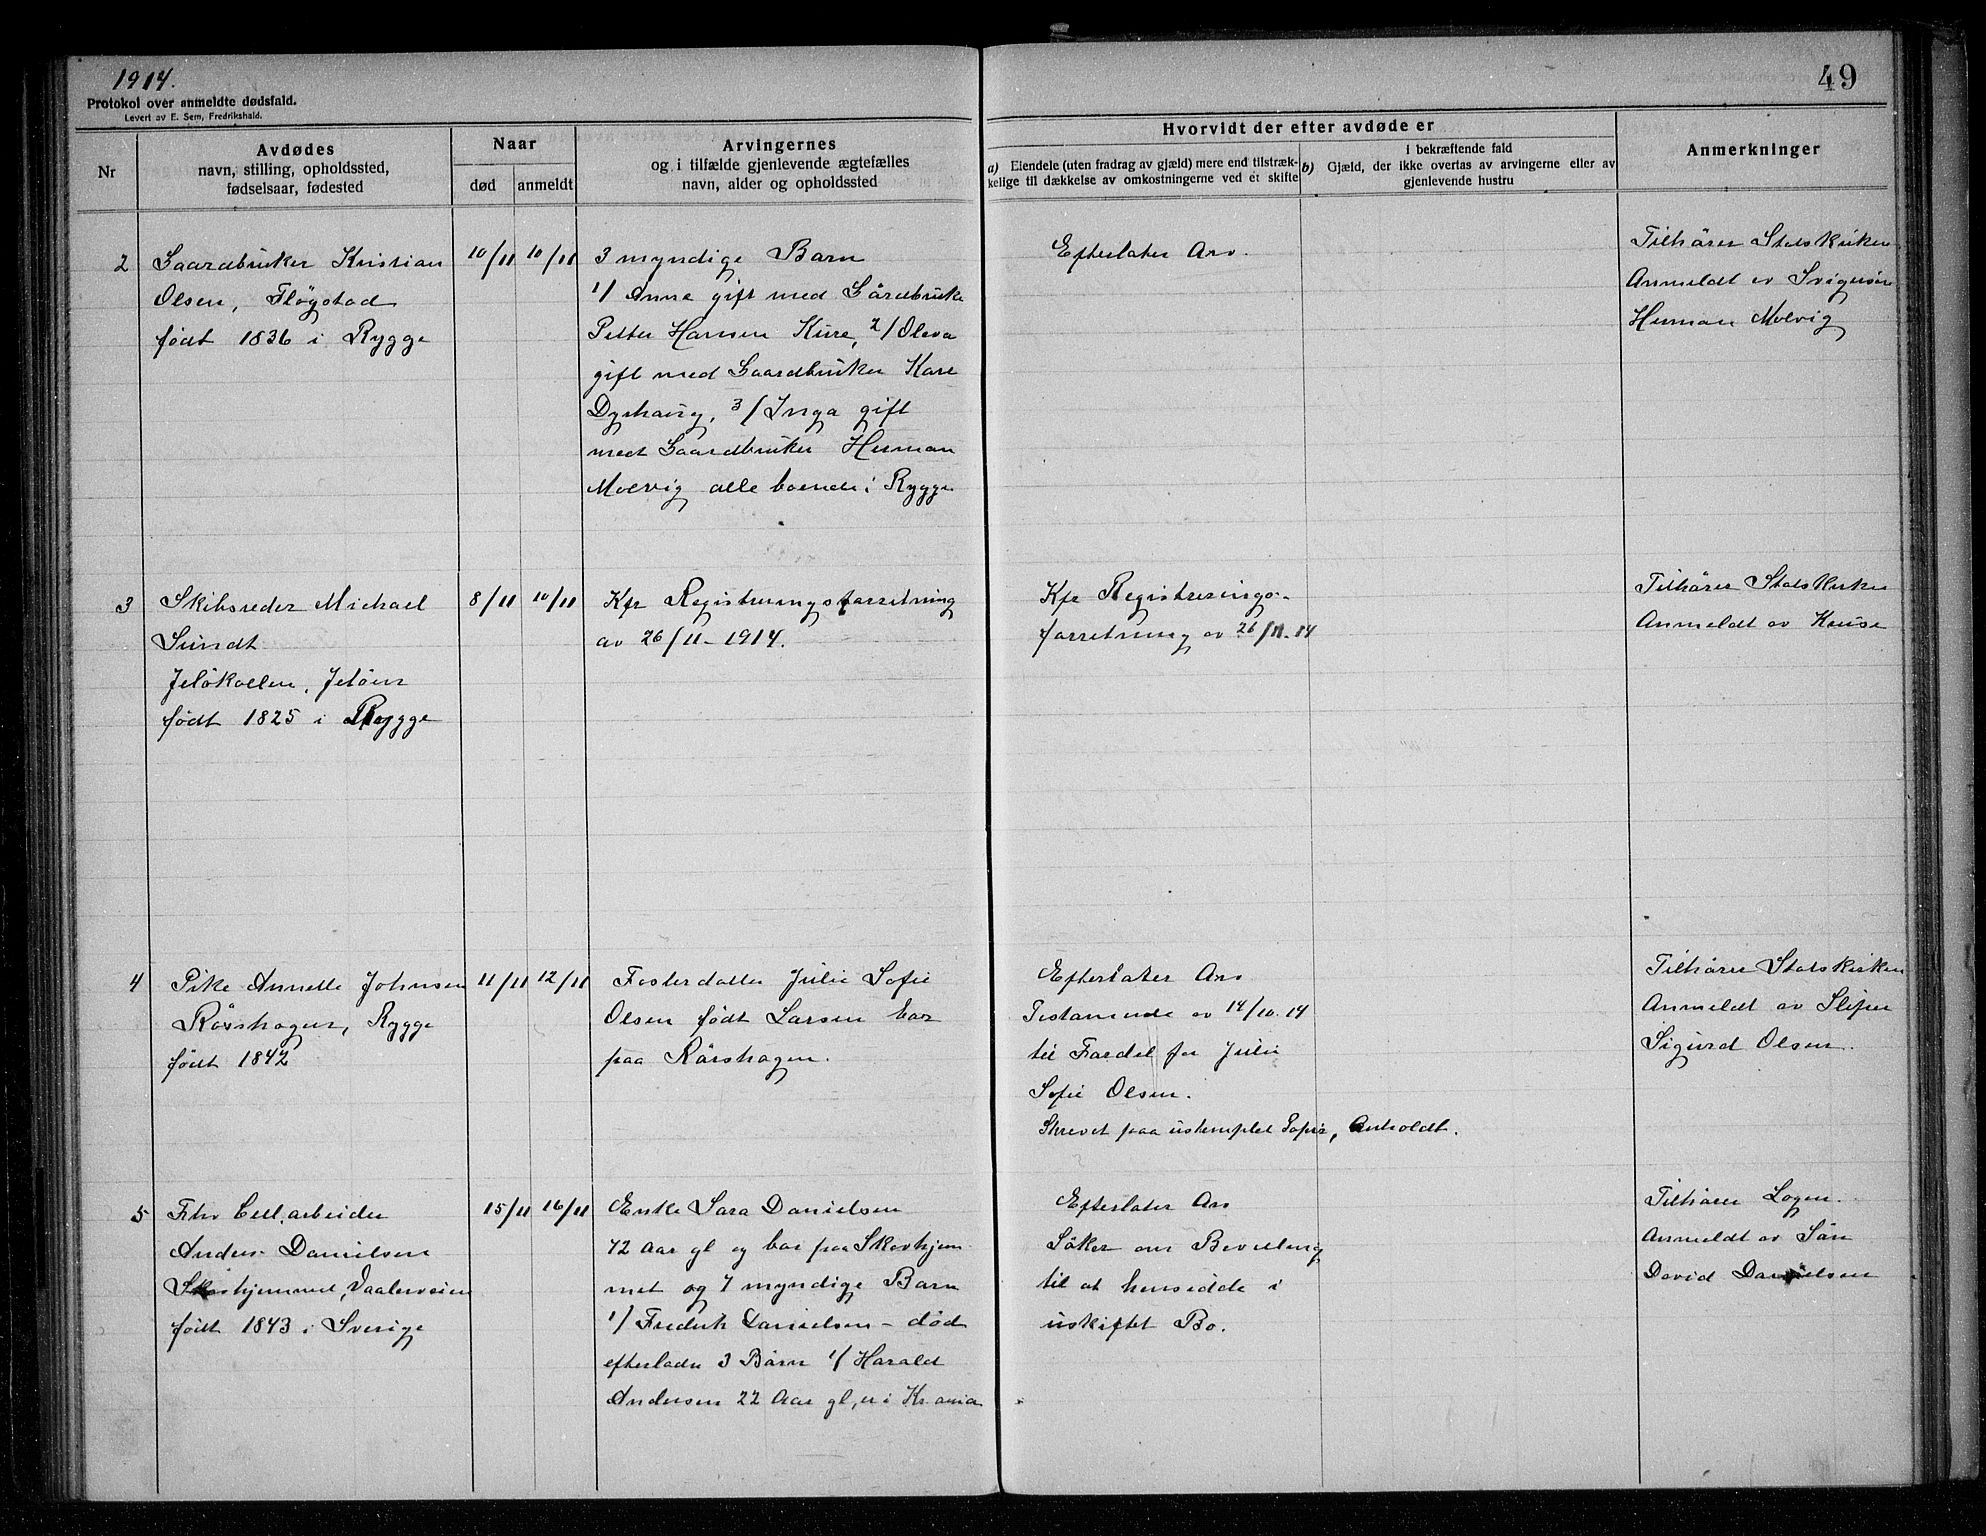 1914.
49
Protokol over anmeldte dødsfald.
Levert av E. Sem, Fredrikshald.
Nr
Avdødes
navn, stilling, opholdssted,
fødselsaar, fødested
Naar
død
anmeldt
Arvingernes
og i tilfælde gjenlevende ægtefælles
navn, alder og opholdssted
Hvorvidt der efter avdøde er
a) Eiendele (uten fradrag av gjæld) mere end tilstræk-
kelige til dækkelse av omkostningerne ved et skifte
i bekræftende fald
b) Gjæld, der ikke overtas av arvingerne eller av
gjenlevende hustru
Anmerkninger
2
Gaardbruker Kristian
Olsen, Fløgstad
født 1836 i Rygge
10/11
10/11
3 myndige Barn
1/ Anna gift med Gårdbruke
Petter Hansen Kure, 2/ Oleva
gift med Gaardbruker Kare
Dyrhaug, 3/ Inga gift
med Gaardbruker Herman
Molvig alle boende i Rygge
Efterlater Arv.
Tilhører Statskirken
Anmeldt av Svigersøn
Herman Molvig
3
Skibsreder Michael
Sundt
Jeløkollen, Jeløen
født 1825 i Rygge
8/11
10/11
Kfr Registreringsforretning
av 26/11-1914.
Kfr Registrerings-
forretning av 26/11-14
Tilhører Statskirken
Anmeldt av Kruse
4
Pike Annette Johnsen
Rørshagen, Rygge
født 1842
11/11
12/11
Fosterdatter Julie Sofie
Olsen født Larsen bor
paa Rørshagen.
Efterlater Arv
Testamente av 14/10.14
til Fordel for Julie
Sofie Olsen.
Skrevet paa ustemplet Papir, Anholdt.
Tilhører Statskirken
Anmeldt av Sliper
Sigurd Olsen.
5
Fhv Cell.arbeider
Anders Danielsen
Skovhjemmet, Vaalerveien
født 1843 i Sverige
15/11
16/11
Enke Sara Danielsen
72 Aar gl og bor paa Skovhjem
met og 7 myndige Barn
1/ Frederik Danielsen - død
efterlader 3 Børn 1/ Harald
Andersen 22 Aar gl, er i Kr.ania
Efterlater Arv
Søker om Bevilling
til at hensidde i
uskiftet Bo.
Tilhører Logen.
Anmeldt av Søn
David Danielsen